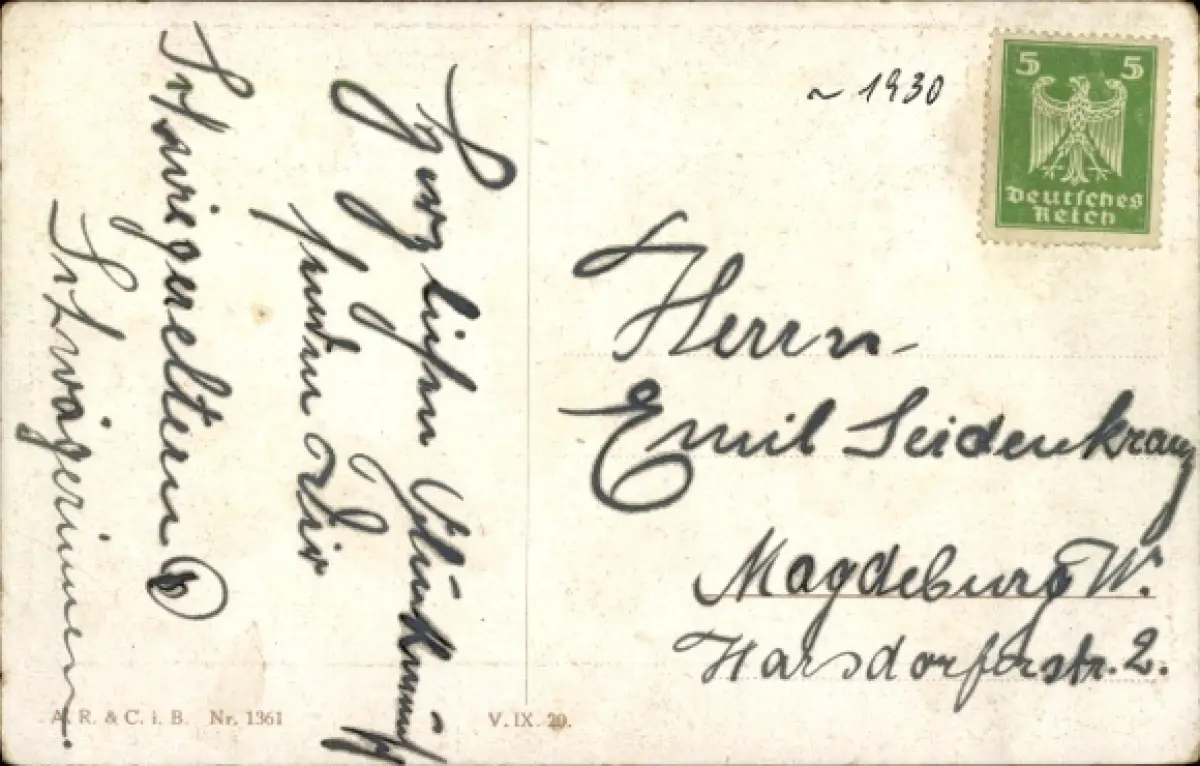 Herzlichen Glückwunsch
senden Dir
Schwiegereltern u
Schwägerinnen.
~ 1930
5 5
Deutsches
Reich
Herrn
Emil Seidenkranz
Magdeburg W.
Harsdorferstr. 2.
A. R. & C. i. B. Nr. 1361
V. IX. 20.